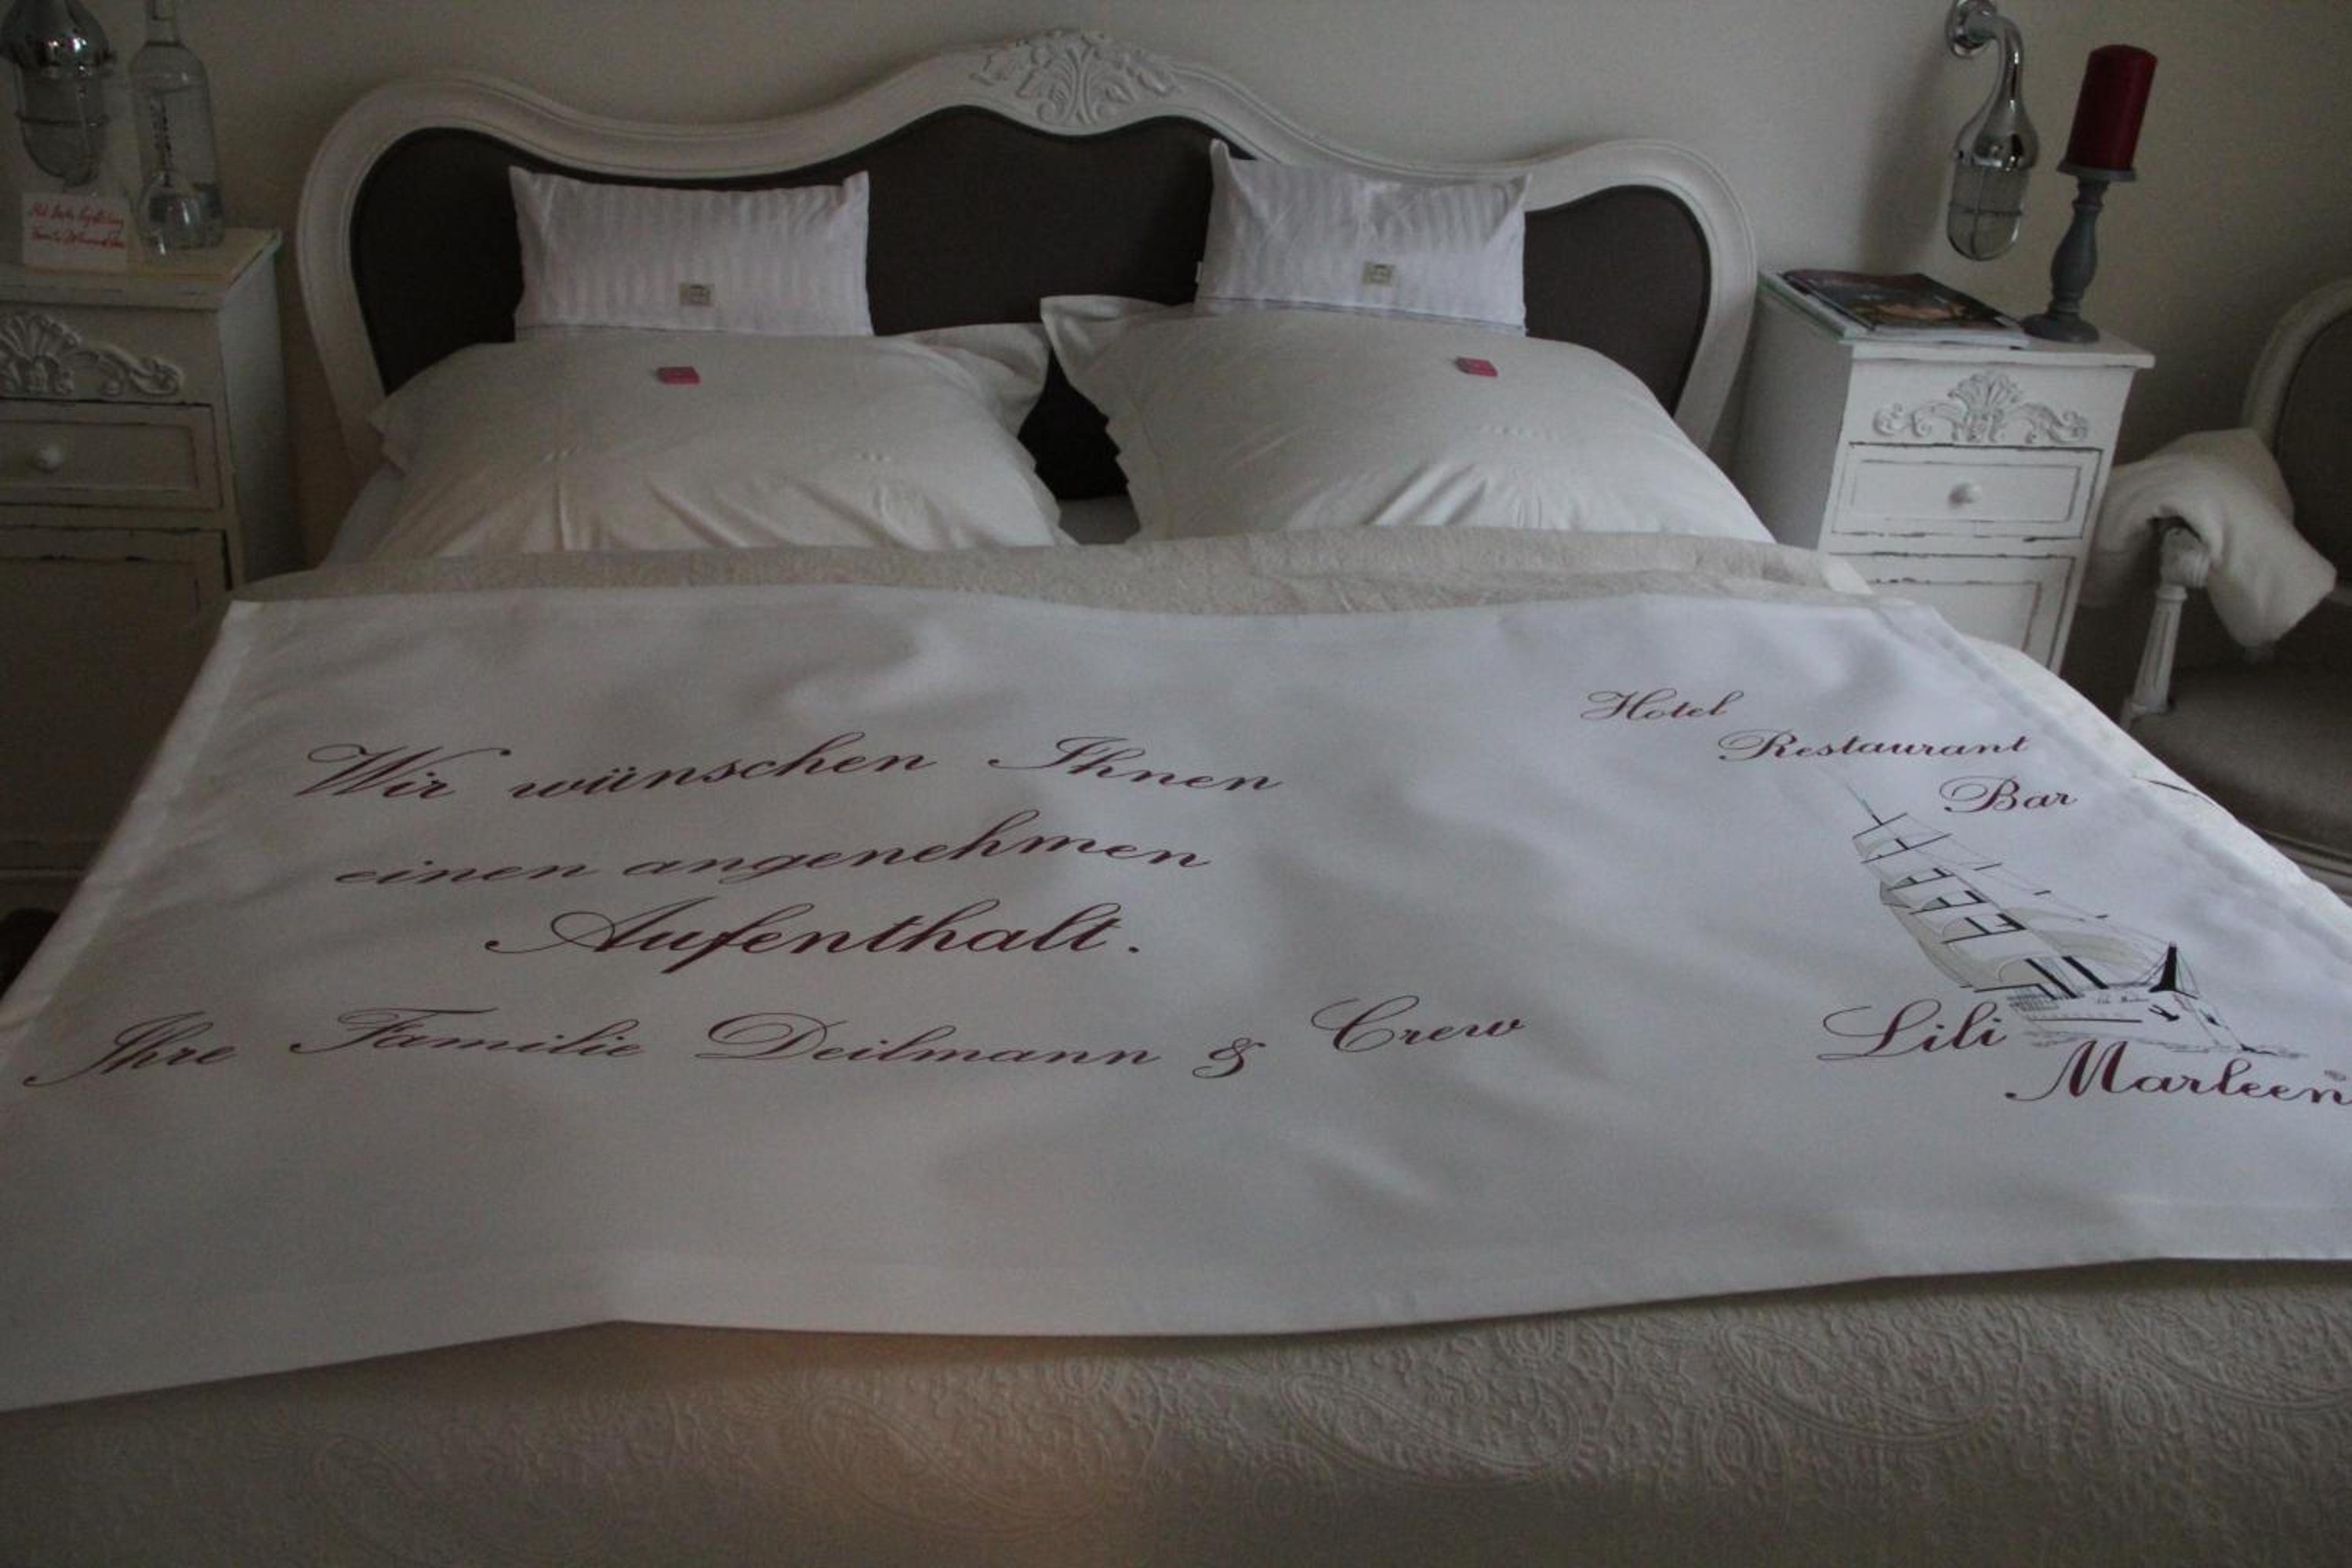 Wir wünschen Ihnen
einen angenehmen
Aufenthalt.
Ihre Familie Deilmann & Crew
Hotel
Restaurant
Bar
Lili
Marleen